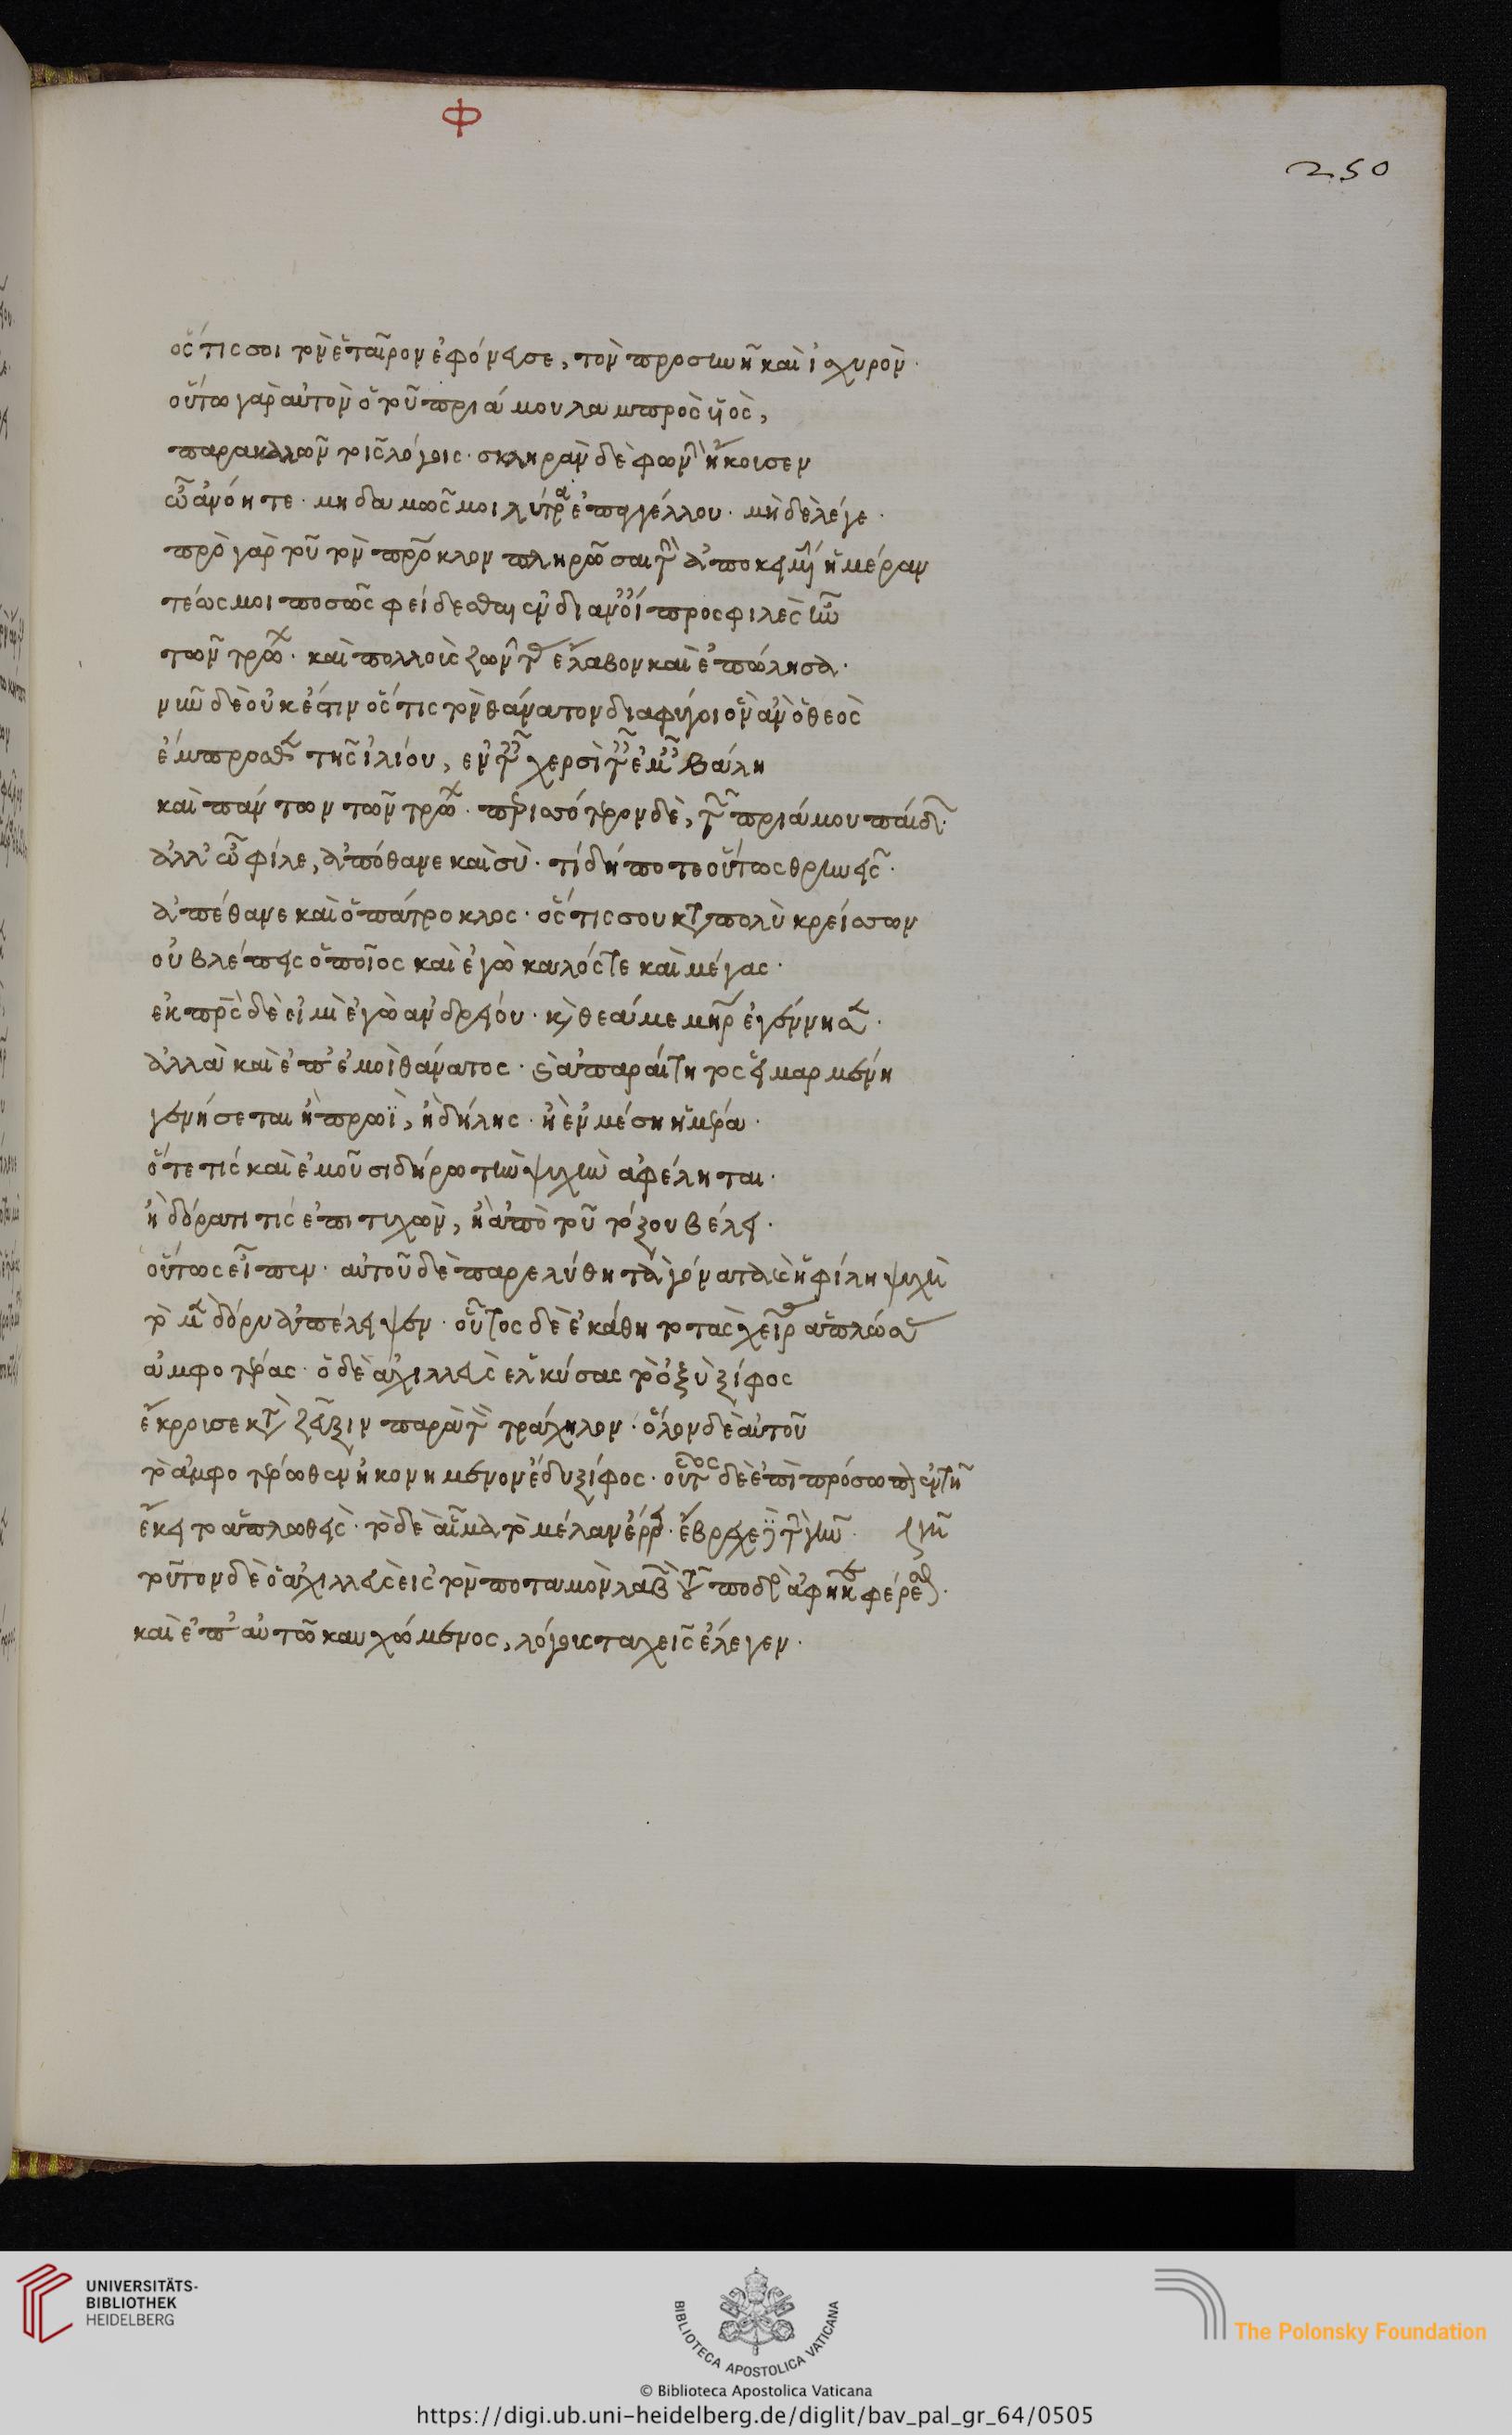 Φ
250
ὅστις σοι τὸν ἑταῖρον ἐφόνευσε, τὸν προσηνῆ καὶ ἰσχυρόν·
οὕτω γὰρ αὐτὸν ὁ τοῦ πριάμου λαμπρὸς υἱὸς,
παρακαλῶν τοῖς λόγοις· σκληρὰν δὲ φωνὴν ἤκουσεν
ὦ ἀνόητε· μηδαμῶς μοι λύτρα ἐπαγγέλλου· μὴ δὲ λέγε·
πρὸ γὰρ τοῦ τὸν πάτροκλον πληρῶσαι τὴν ἀποκειμένην ἡμέραν
τέως μοι ποσῶς φείδεσθαι ἐν διανοίᾳ προσφιλὲς ἦν
τῶν τρώων· καὶ πολλοὺς ζῶντας ἔλαβον καὶ ἐπώλησα·
νῦν δὲ οὐκ ἔστιν ὅστις τὸν θάνατον διαφύγοι ὃν ἂν ὁ θεὸς
ἔμπροσθεν τῆς ἰλίου, ἐν ταῖς χερσὶ ταῖς ἐμαῖς βάλη
καὶ πάντων τῶν τρώων· περισσότερον δὲ, τῶν πριάμου παίδων·
ἀλλ' ὦ φίλε, ἀπόθανε καὶ σὺ· τί δήποτε οὕτως θρηνεῖς·
ἀπέθανε καὶ ὁ πάτροκλος· ὅστις σου κατὰ πολὺ κρείσσων
οὐ βλέπεις ὁποῖος καὶ ἐγὼ καλός τε καὶ μέγας·
ἐκ πατρὸς δὲ εἰμὶ ἐγὼ ἀνδρείου· καὶ θεά με μήτηρ ἐγέννησεν·
ἀλλὰ καὶ ἐπ' ἐμοὶ θάνατος· καὶ ἀπαραίτητος εἱμαρμένη
γενήσεται ἢ πρωῒ, ἢ δείλης· ἢ ἐν μέση ἡμέρα·
ὅτε τίς καὶ ἐμοῦ σιδήρω τὴν ψυχὴν ἀφέληται·
ἢ δόρατι τίς ἐπιτυχὼν, ἢ ἀπὸ τοῦ τόξου βέλει·
οὕτως εἶπεν· αὐτοῦ δὲ παρελύθη τὰ γόνατα καὶ ἡ φίλη ψυχὴ
τὸ μὲν δόρυ ἀπέλειψεν· οὗτος δὲ ἐκάθητο τὰς χεῖρας ἁπλώσας
ἀμφοτέρας· ὁ δὲ ἀχιλλεὺς ἑλκύσας τὸ ὀξὺ ξίφος
ἔκρουσε κατὰ παρὰ τὸν τράχηλον· ὅλον δὲ αὐτοῦ
τὸ ἀμφοτέρωθεν ἠκονημένον ἔδυ ξίφος· οὗτος δὲ ἐπὶ πρόσωπον ἐν τῆ
ἔκειτο ἁπλωθεὶς· τὸ δὲ αἷμα τὸ μέλαν ἔρρει· ἔβραχε δὲ τὴν γῆν· γῆ
τοῦτον δὲ ὁ ἀχιλλεὺς εἰς τὸν ποταμὸν λαβὼν τοῦ ποδὸς ἀφῆκε φέρεσθαι·
καὶ ἐπ' αὐτῶ καυχώμενος, λόγους ταχεῖς ἔλεγεν·
UNIVERSITÄTS-
BIBLIOTHEK
HEIDELBERG
BIBLIOTECA APOSTOLICA VATICANA
The Polonsky Foundation
© Biblioteca Apostolica Vaticana
https://digi.ub.uni-heidelberg.de/diglit/bav_pal_gr_64/0505